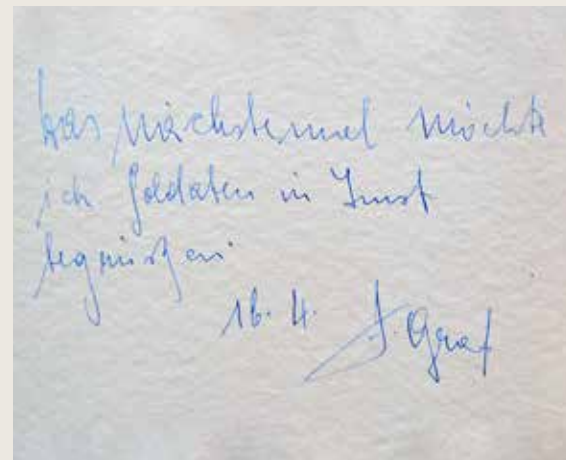 Das nächstemal möchte
ich Soldaten in Imst
begrüßen.
16. 4. J. Graf